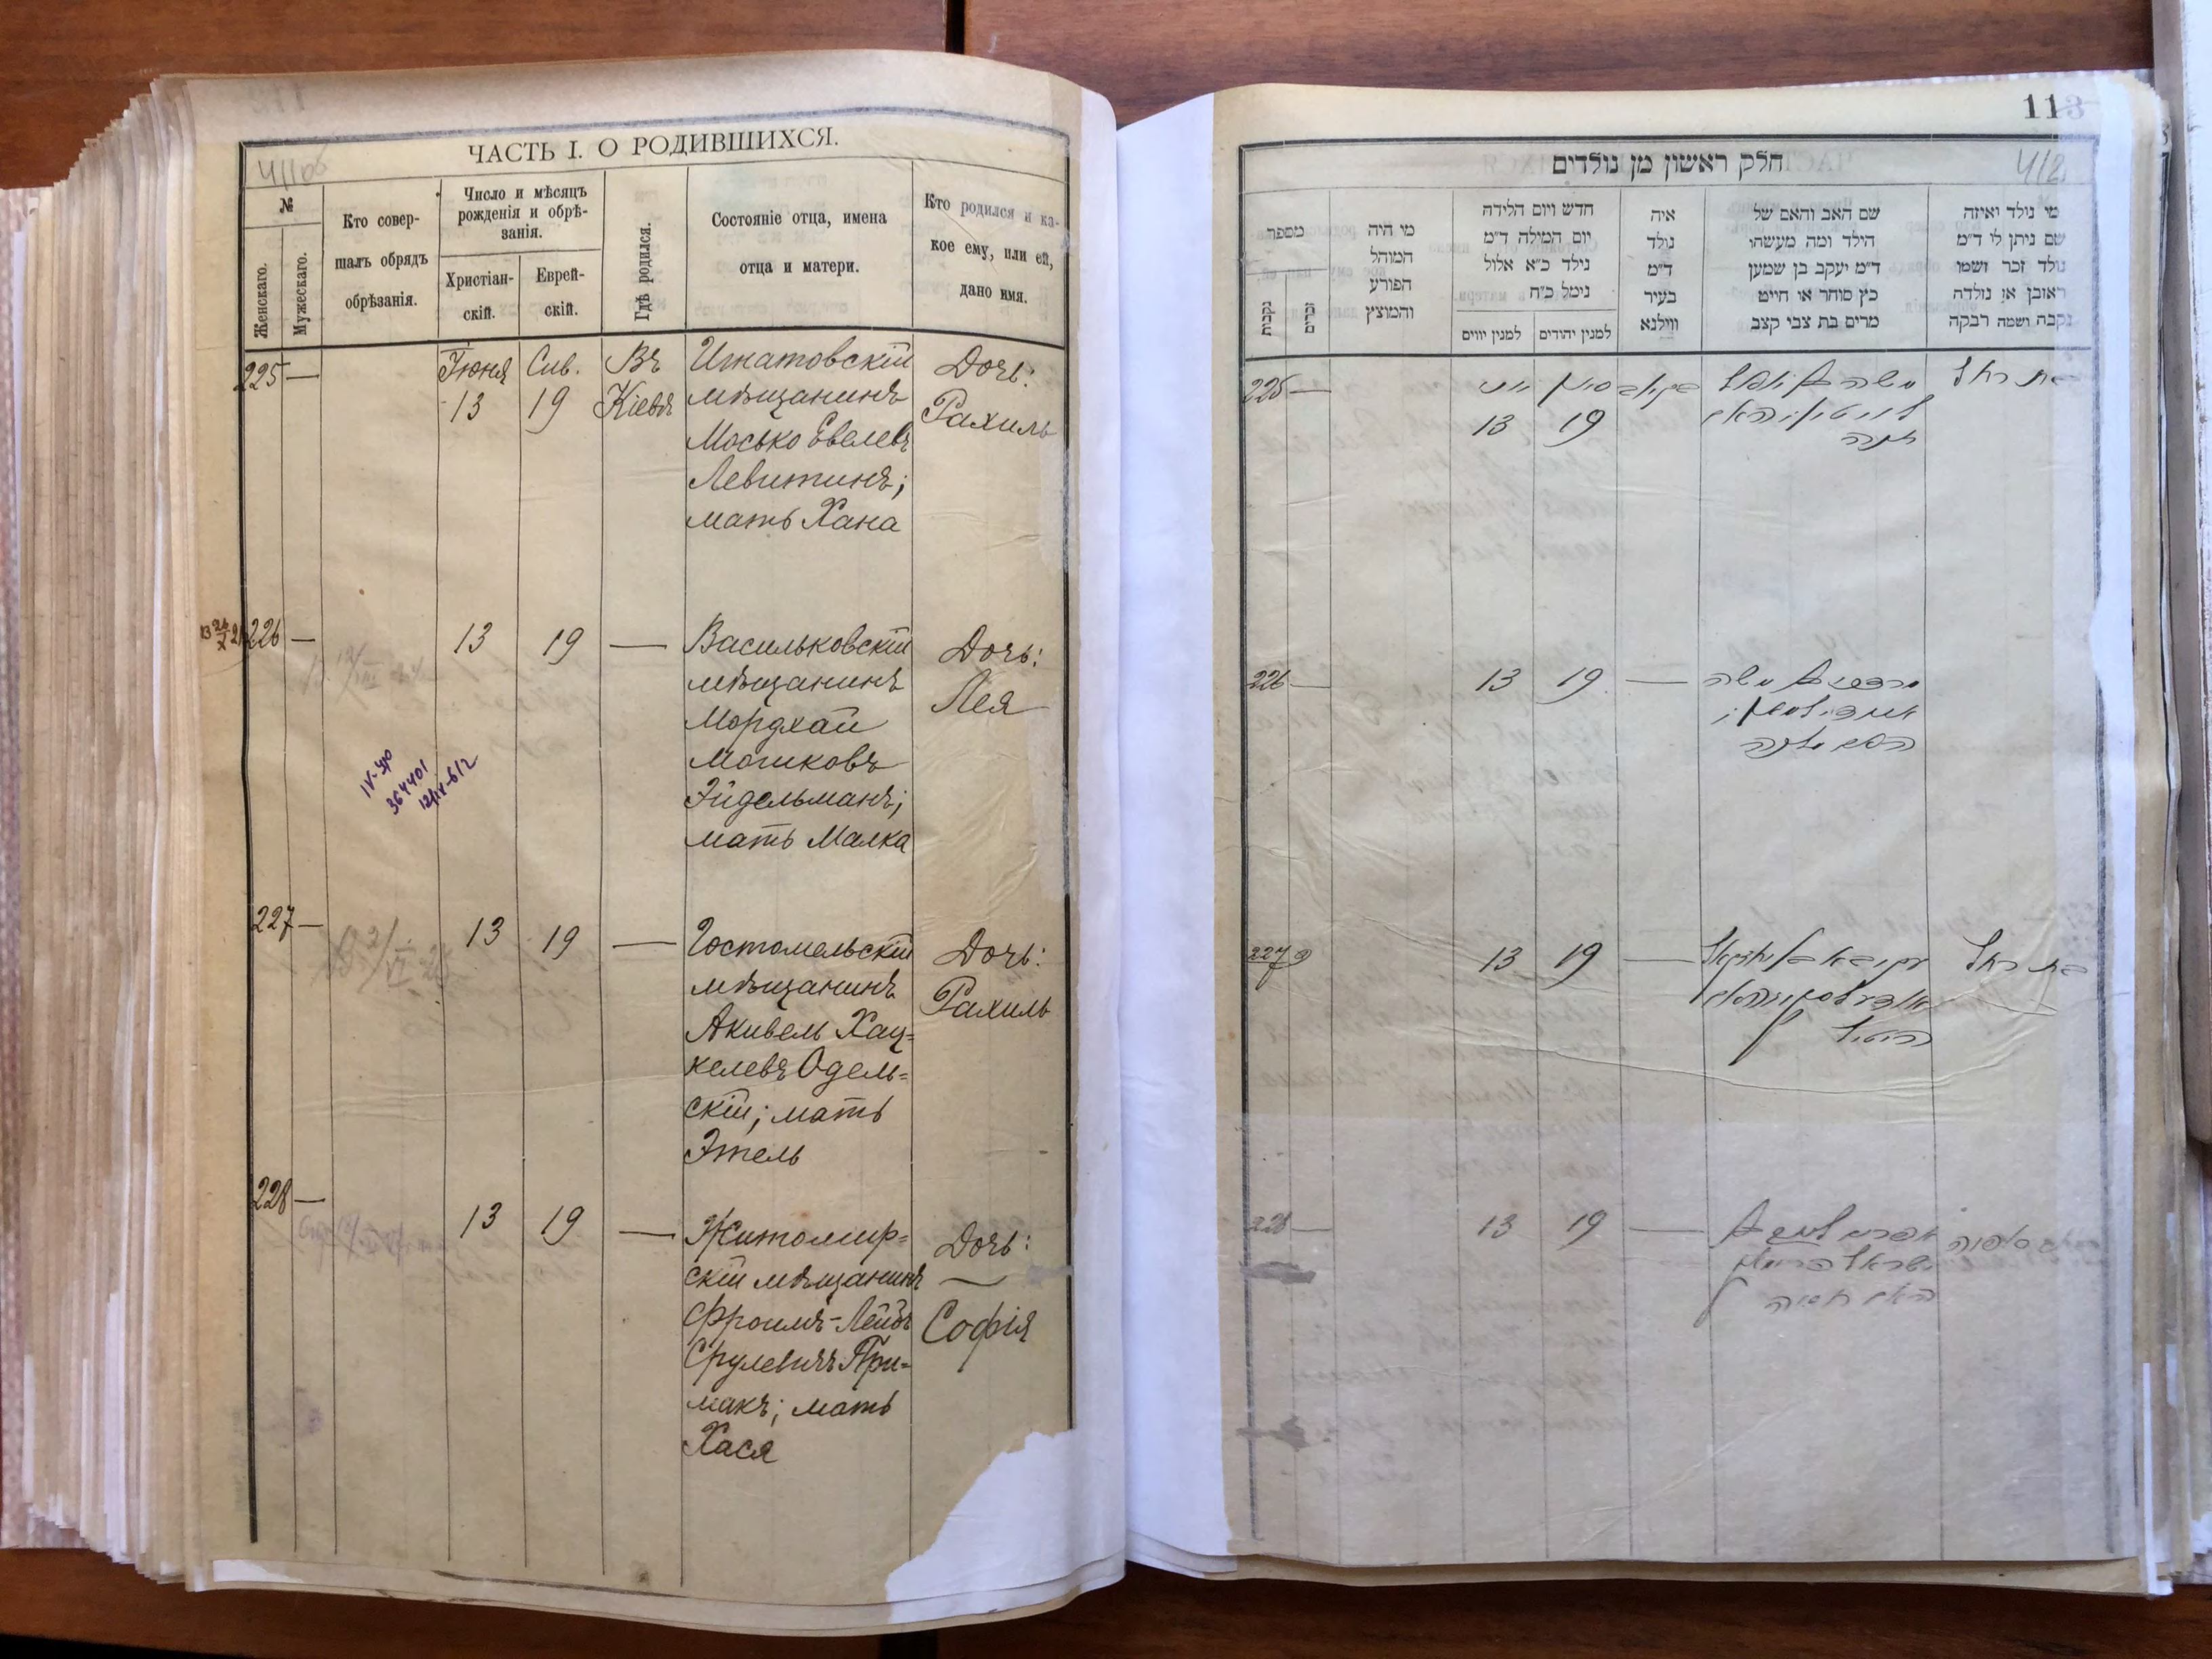 ЧАСТЬ I. О РОДИВШИХСЯ.
411об
№
Женскаго.
Мужескаго.
Кто совер-
шалъ обрядъ
обрѣзанія.
Число и мѣсяцъ
рожденія и обрѣ-
занія.
Христіан-
скій.
Еврей-
скій.
Гдѣ родился.
Состояніе отца, имена
отца и матери.
Кто родился и ка-
кое ему, или ей,
дано имя.
225 —
Іюня
13
Сив.
19
Въ
Кіевѣ
Игнатовскій
мѣщанинъ
Мосько Евелевъ
Левитинъ;
мать Хана
Дочь:
Рахиль
226 —
13
19
—
Васильковскій
мѣщанинъ
Мордхай
Мошковъ
Эйдельманъ;
мать Малка
Дочь:
Лея
IV-ур
364401
227 —
13
19
—
Гостомельскій
мѣщанинъ
Акивель Хац=
келевъ Одель=
скій; мать
Этель
Дочь:
Рахиль
228 —
13
19
—
Житомир=
скій мѣщанинъ
Фроимъ-Лейбъ
Срулевичъ При=
макъ; мать
Хася
Дочь:
—
Софія
113
חלק ראשון מן נולדים
412
מספר
נקבות
זכרים
מי היה
המוהל
הפורע
והמוצץ
חדש ויום הלידה
יום המילה ד"מ
נילד כ"א אלול
נימל כ"ח
למנין יווים
למנין יהודים
איה
נולד
ד"מ
בעיר
ווילנא
שם האב והאם של
הילד ומה מעשהו
ד"מ יעקב בן שמעון
כץ סוחר או חייט
מרים בת צבי קצב
מי נולד ואיזה
שם ניתן לו ד"מ
נולד זכר ושמו
ראובן או נולדה
נקבה ושמה רבקה
225 —
יוני
13
סיון
19
בקיוב
משה ב
לוויטין והאם
חנה
בת רחל
226 —
13
19
—
מרדכי ב משה
איידילמאן;
האם מלכה
227
13
19
—
עקיבא ב יחזקאל
אדעלסקי והאם
בת רחל
228 —
13
19
—
אפרים לייב ב
ישראל פרימאק
האם חסיה
סאפיה